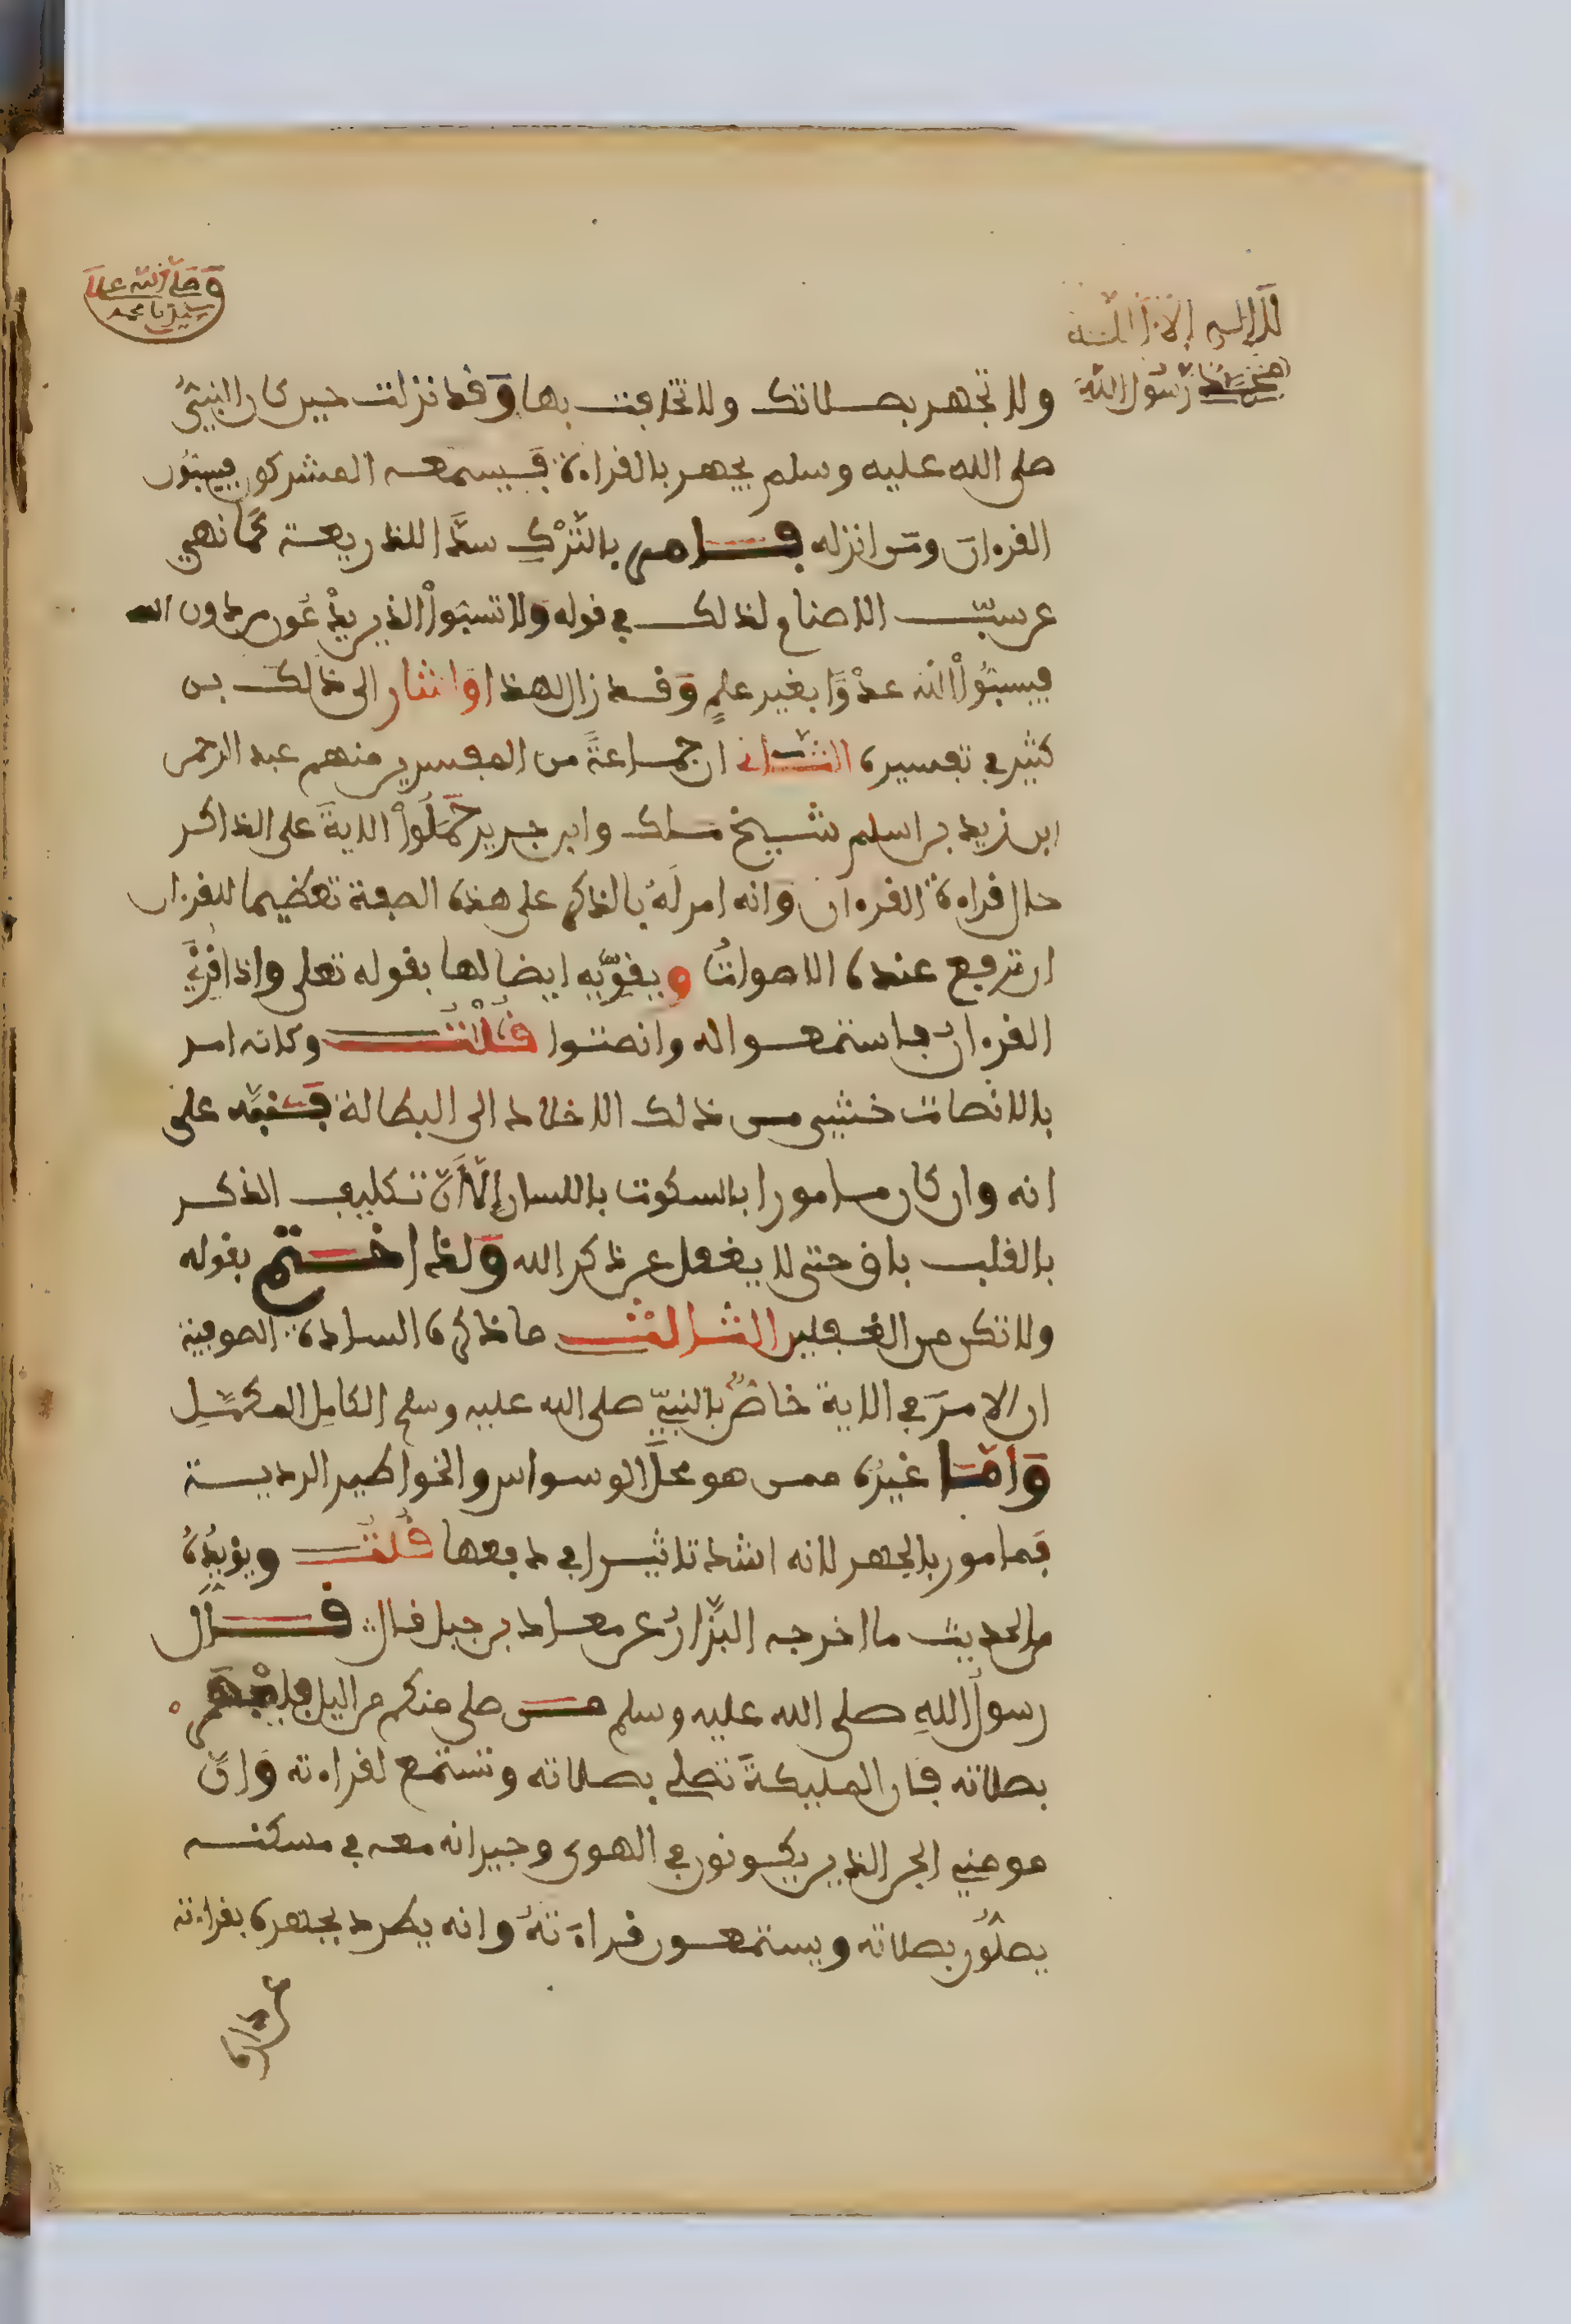 وصلى الله على
سيدنا محمد
لا إله إلا الله
محمد رسول الله
ولا تجهر بصلاتك ولا تخافت بها وقد نزلت حين كان النبيُّ
صلى الله عليه وسلم يجهر بالقراءة فيسمعه المشركون فيسبّون
القرءان ومن انزله فامر بالتّرْكِ سدًّا للذريعة كمَا نهي
عن سبّ الاصنام لذلك في قوله ولا تسبّواْ الذين يدْعُون من دون الله
فيسبّواْ الله عدْوًا بغير علمٍ وقد زال هذا واشار الى ذلك بن
كثير في تفسيره الثاني ان جماعةً من المفسرين منهم عبد الرحمن
ابن زيد بن اسلم شيخ ملك وابن جرير حمَلُواْ الايةَ على الذاكر
حال قراءة القرءان وانه امر لهُ بالذكر على هذه الصفة تعظيما للقرءان
ان ترفع عنده الاصواتُ ويقوّيه ايضا لها بقوله تعلى واذا قُرِئَ
القرءانُ فاستمعوا له وانصتوا قُلْتُ وكانه امر
بالانصات خشي من ذلك الاخلاد الى البطالة فنبّه على
انه وان كان مامورا بالسكوت باللسان إلّا أنّ تكليف الذكر
بالقلب باق حتى لا يغفل عن ذكر الله ولذا ختم بقوله
ولا تكن من الغفلين الثالث ما ذكره السادة الصوفية
ان الامرَ في الاية خاصٌّ بالنبيّ صلى الله عليه وسلم الكامِل المكمّلِ
وَامّا غيرُه ممن هو محلّ الوسواس والخواطير الردية
فمامور بالجهر لانه اشد تاثيرا في دفعها قُلْتُ ويؤيدُهُ
من الحديث ما اخرجه البزّارُ عن معاد بن جبل قال قَالَ
رسولُ اللهِ صلى الله عليه وسلم من صلى منكم من اليل فليجْهَر
بصلاته فان المليكةَ تصلي بصلاته وتستمع لقراءته وَانّ
مومني الجن الذين يكونون في الهوى وجيرانه معه في مسكنه
يصلُّون بصلاته ويستمعون قراءَتهُ وانه يطرد بجهره بقراءته
عن داره